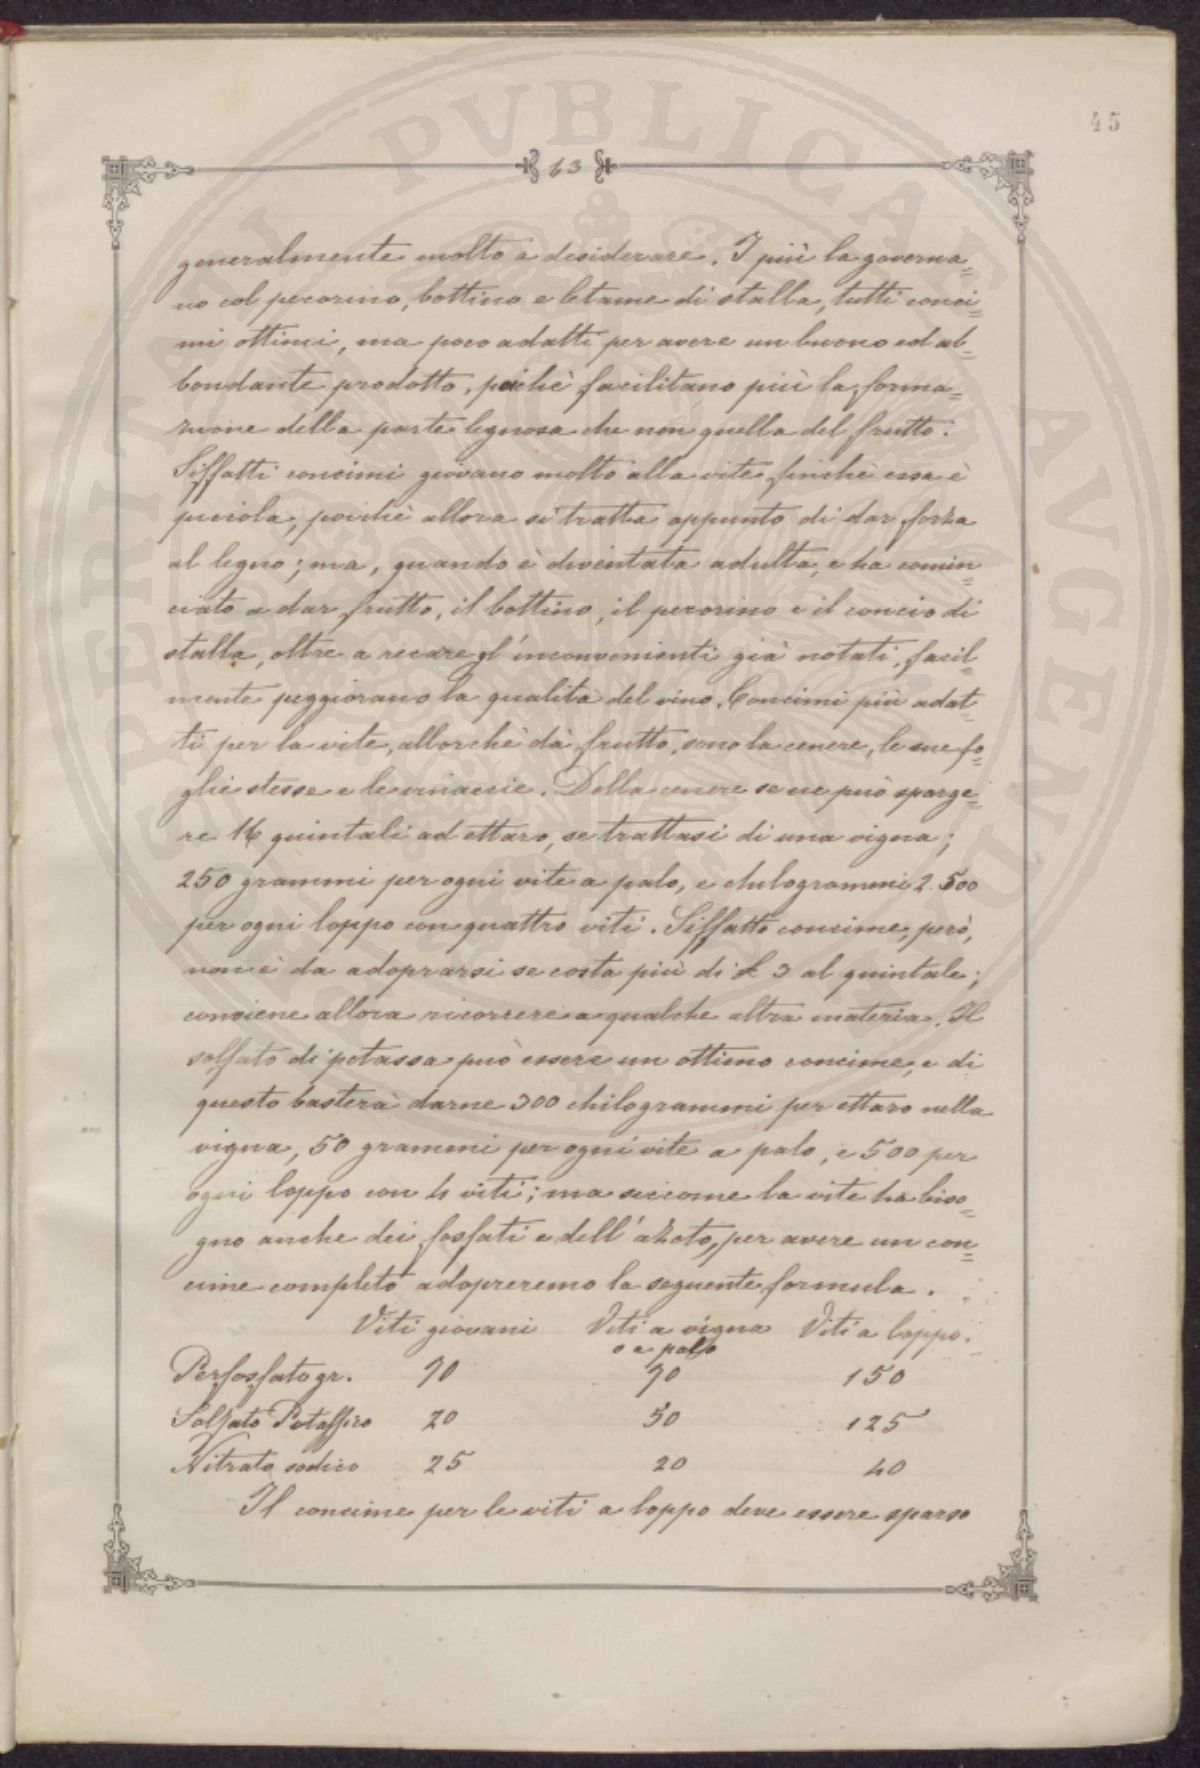 45
13
generalmente molto a desiderare. I più la governa=
no col pecorino, bottino e letame di stalla, tutti conci=
mi ottimi, ma poco adatti per avere un buono ed ab=
bondante prodotto, poichè facilitano più la forma=
zione della parte legnosa che non quella del frutto.
Siffatti concimi giovano molto alla vite finchè essa è
piccola, poichè allora si tratta appunto di dar forza
al legno; ma, quando è diventata adulta, e ha comin=
ciato a dar frutto, il bottino, il pecorino e il concio di
stalla, oltre a recare gl'inconvenienti già notati, facil=
mente peggiorano la qualità del vino. Concimi più adat=
ti per la vite, allorchè dà frutto, sono la cenere, le sue fo=
glie stesse e le vinaccie. Della cenere se ne può sparge=
re 16 quintali ad ettaro, se trattasi di una vigna;
250 grammi per ogni vite a palo, e chilogrammi 2.500
per ogni loppo con quattro viti. Siffatto concime, però,
non è da adoprarsi se costa più di £ 3 al quintale;
conviene allora ricorrere a qualche altra materia. Il
solfato di potassa può essere un ottimo concime, e di
questo basterà darne 300 chilogrammi per ettaro nella
vigna, 50 grammi per ogni vite a palo, e 500 per
ogni loppo con 4 viti; ma siccome la vite ha biso=
gno anche dei fosfati e dell'azoto, per avere un con=
cime completo adopreremo la seguente formula.
Viti giovani Viti a vigna Viti a loppo.
o a palo
Perfosfato gr. 70 70 150
Solfato Potassico 20 50 125
Nitrato sodico 25 20 40
Il concime per le viti a loppo deve essere sparso